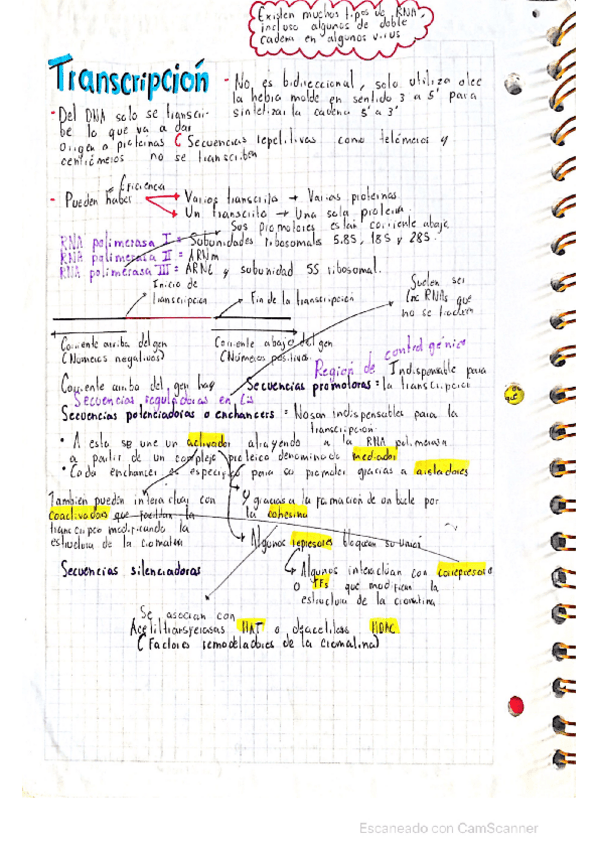 Existen muchos tipos de RNA,
incluso algunos de doble
cadena en algunos virus
Transcripción
- No, es bidireccional, solo utiliza
la hebra molde en sentido 3 a 5 para
sintetizar la cadena 5 a 3
- Del DNA solo se transcri-
be lo que va a dar
origen a proteinas ( Secuencias repetitivas como telómeros y
centrómeros no se transcriben
Eficiencia
- Pueden haber
Varios transcrito → Varias proteinas
Un transcrito → Una sola proteina
Sus promotores estan corriente abajo
RNA polimerasa I = Subunidades ribosomales 5.8S, 18S y 28S.
RNA polimerasa II = ARNm
RNA polimerasa III = ARNt y subunidad 5S ribosomal.
Inicio de
transcripcion
Fin de la transcripción
Suelen ser
lnc RNAs que
no se traducen
Corriente arriba del gen
(Números negativos)
Corriente abajo del gen
(Números positivos)
Region de control génico
Corriente arriba del gen hay
Secuencias reguladoras en Cis
Secuencias promotoras = Indispensable para
la transcripción
Secuencias potenciadoras o enchancers = No son indispensables para la
transcripcion
• A esta se une un activador atrayendo a la RNA polimerasa
a partir de un complejo proteico denominado mediador
• Cada enchancer es especifico para su promotor gracias a aisladores
Y gracias a la formación de un bucle por
la cohesina
También pueden interactuar con
coactivadores que facilitan la
transcripcion modificando la
estructura de la cromatina
Algunos represores bloquean su union
Secuencias silenciadoras
Algunos interactúan con corepresores
o TFs que modifican la
estructura de la cromatina
Se asocian con
Acetiltransferasas HAT o deacetilasas HDAC
( Factores remodeladores de la cromatina)
Escaneado con CamScanner